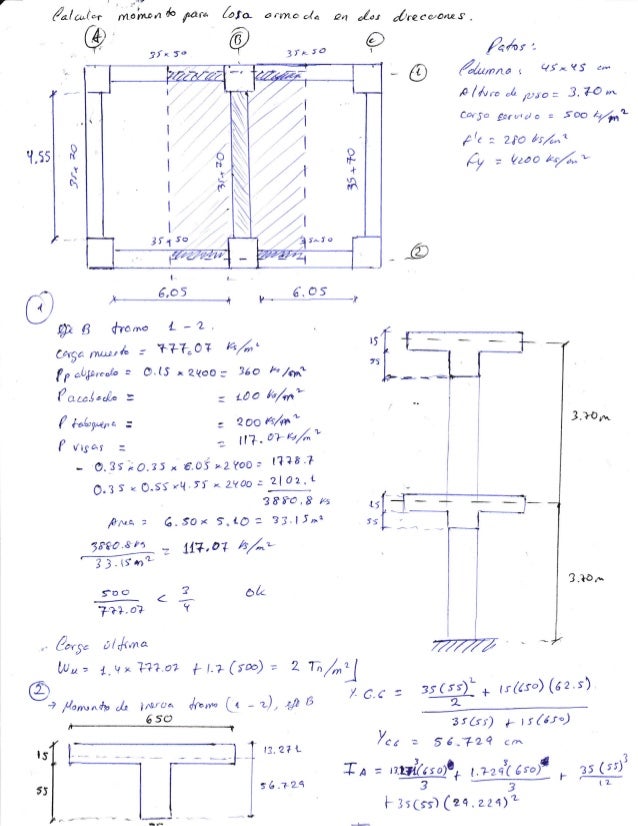 Calcular momento para losa armada en dos direcciones.
A B C
35x50 35x50
1
4.55
35x70
35x70
35x70
35x50 35x50
2
6.05 6.05
Datos:
Columna: 45x45 cm
Altura de piso = 3.70 m
Carga servido = 500 kg/m²
f'c = 280 kg/cm²
fy = 4200 kg/cm²
1
eje B tramo 1-2.
Carga muerto = 777.07 kg/m²
Pp aligerado = 0.15 x 2400 = 360 kg/m²
P acabado = = 100 kg/m²
P tabiqueria = = 200 kg/m²
P vigas = = 117.07 kg/m²
- 0.35 x 0.35 x 6.05 x 2400 = 1778.7
0.35 x 0.55 x 4.55 x 2400 = 2102.1
3880.8 kg
Area = 6.50 x 5.10 = 33.15 m²
3880.8 kg / 33.15 m² = 117.07 kg/m²
500 / 777.07 < 3/4 ok
Carga última
Wu = 1.4 x 777.07 + 1.7 (500) = 2 Tn/m²
15
55
3.70 m
15
55
3.70 m
2
→ Momento de inercia tramo (1-2), eje B
650
15
55
13.271
56.729
35
Y C.G = 35(55)²/2 + 15(650)(62.5) / 35(55) + 15(650)
YCG = 56.729 cm
IA = 13.271³(650)/3 + 1.729³(650)/3 + 35(55)³/12
+ 35(55)(29.229)²